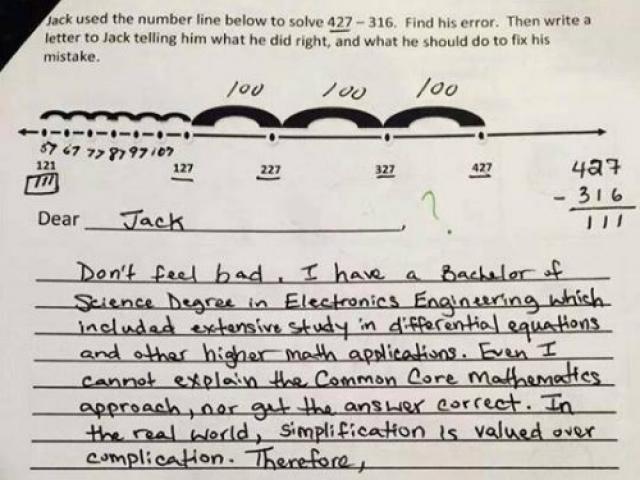 Jack used the number line below to solve 427 – 316. Find his error. Then write a
letter to Jack telling him what he did right, and what he should do to fix his
mistake.
100 100 100
57 67 77 87 97 107
121 127 227 327 427
111
427
- 316
111
Dear Jack,
?
Don't feel bad. I have a Bachelor of
Science Degree in Electronics Engineering which
included extensive study in differential equations
and other higher math applications. Even I
cannot explain the Common Core mathematics
approach, nor get the answer correct. In
the real world, simplification is valued over
complication. Therefore,